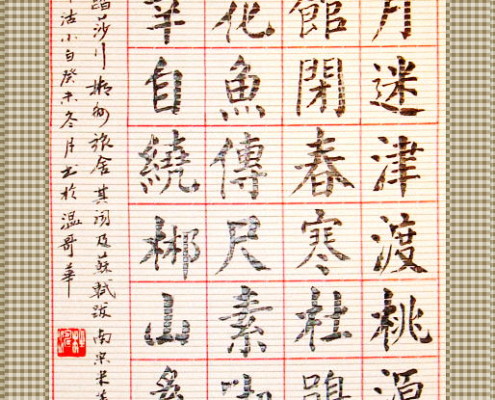 月迷津渡桃源
館閉春寒杜鵑
花魚傳尺素砌
幸自繞郴山為
踏莎行郴州旅舍其詞及蘇軾跋南宋米
沽小白癸未冬月书於温哥華